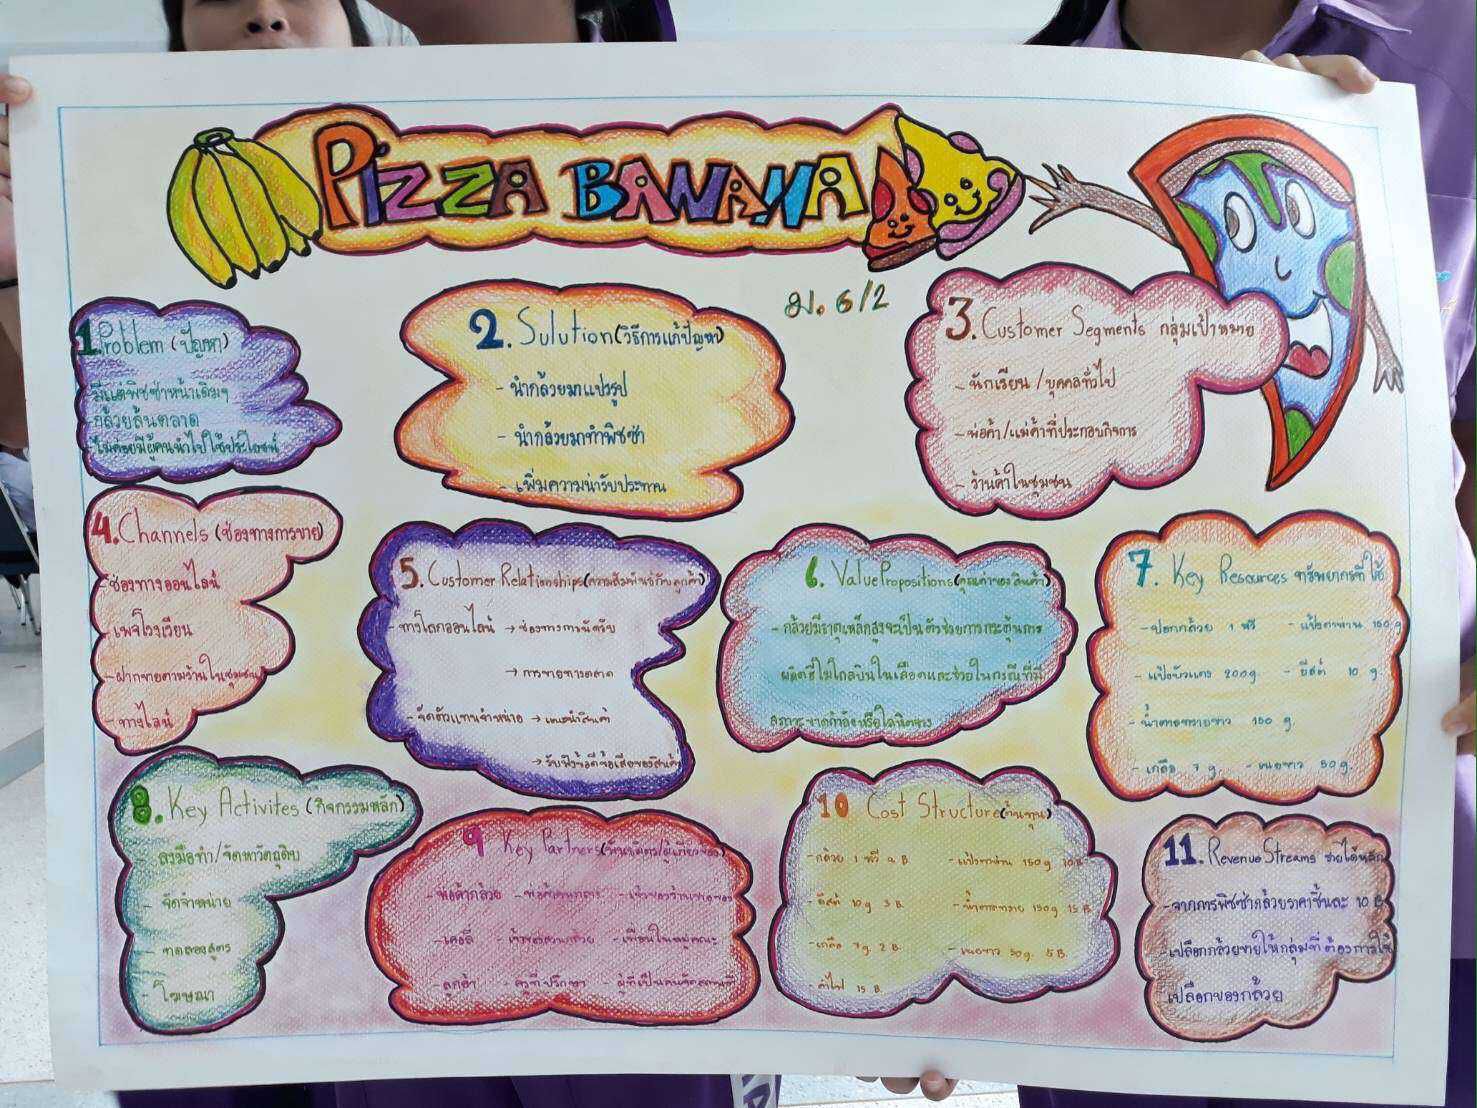 PIZZA BANANA
ม. 6/2
1. Problem (ปัญหา)
- มีแต่พิซซ่าหน้าเดิมๆ
- กล้วยล้นตลาด
- ไม่ค่อยมีผู้คนนำไปใช้ประโยชน์
2. Sulution (วิธีการแก้ปัญหา)
- นำกล้วยมาแปรรูป
- นำกล้วยมาทำพิซซ่า
- เพิ่มความน่ารับประทาน
3. Customer Segments กลุ่มเป้าหมาย
- นักเรียน / บุคคลทั่วไป
- พ่อค้า/แม่ค้าที่ประกอบกิจการ
- ร้านค้าในชุมชน
4. Channels (ช่องทางการขาย)
- ช่องทางออนไลน์
- เพจโรงเรียน
- ฝากขายตามร้านในชุมชน
- ทางไลน์
5. Customer Relationships (ความสัมพันธ์กับลูกค้า)
- ทางโลกออนไลน์ → ช่องทางการนัดรับ
→ การขายทางตลาด
- จัดตัวแทนจำหน่าย → แนะนำสินค้า
→ รับฟังข้อดีข้อเสียของสินค้า
6. Value Propositions (คุณค่าของสินค้า)
- กล้วยมีธาตุเหล็กสูงจะเป็นตัวช่วยการกระตุ้นการ
ผลิตฮีโมโกลบินในเลือดและช่วยในกรณีที่มี
สภาวะขาดกำลังหรือโลหิตจาง
7. Key Resources ทรัพยากรที่ใช้
- ปอกกล้วย 1 หวี - แป้งสาลี 150 g
- แป้งบัวแดง 200g. - ยีสต์ 10 g.
- น้ำตาลทรายขาว 150 g.
- เกลือ 7 g. - เนยขาว 50g.
8. Key Activites (กิจกรรมหลัก)
- ลงมือทำ/จัดหาวัตถุดิบ
- จัดจำหน่าย
- ทดลองสูตร
- โฆษณา
9 Key Partners (พันธมิตร/ผู้เกี่ยวข้อง)
- พ่อค้ากล้วย - พ่อค้าคนกลาง - เจ้าของร้านขายของ
- เคอรี่ - เจ้าของสวนกล้วย - เพื่อนในหมู่คณะ
- ลูกค้า - ครูที่ปรึกษา
10 Cost Structure (ต้นทุน)
- กล้วย 1 หวี 9 B. 150g 10B.
- ยีสต์ 10g 3 B. - น้ำตาลทราย 150g 15 B.
- เกลือ 7g. 2 B. - เนยขาว 50g. 5 B.
- ค่าไฟ 15 B.
11. Revenue Streams รายได้หลัก
- จากการพิซซ่ากล้วยราคาชิ้นละ 10 B.
- เปลือกกล้วยขายให้กลุ่มที่ต้องการใช้
เปลือกของกล้วย